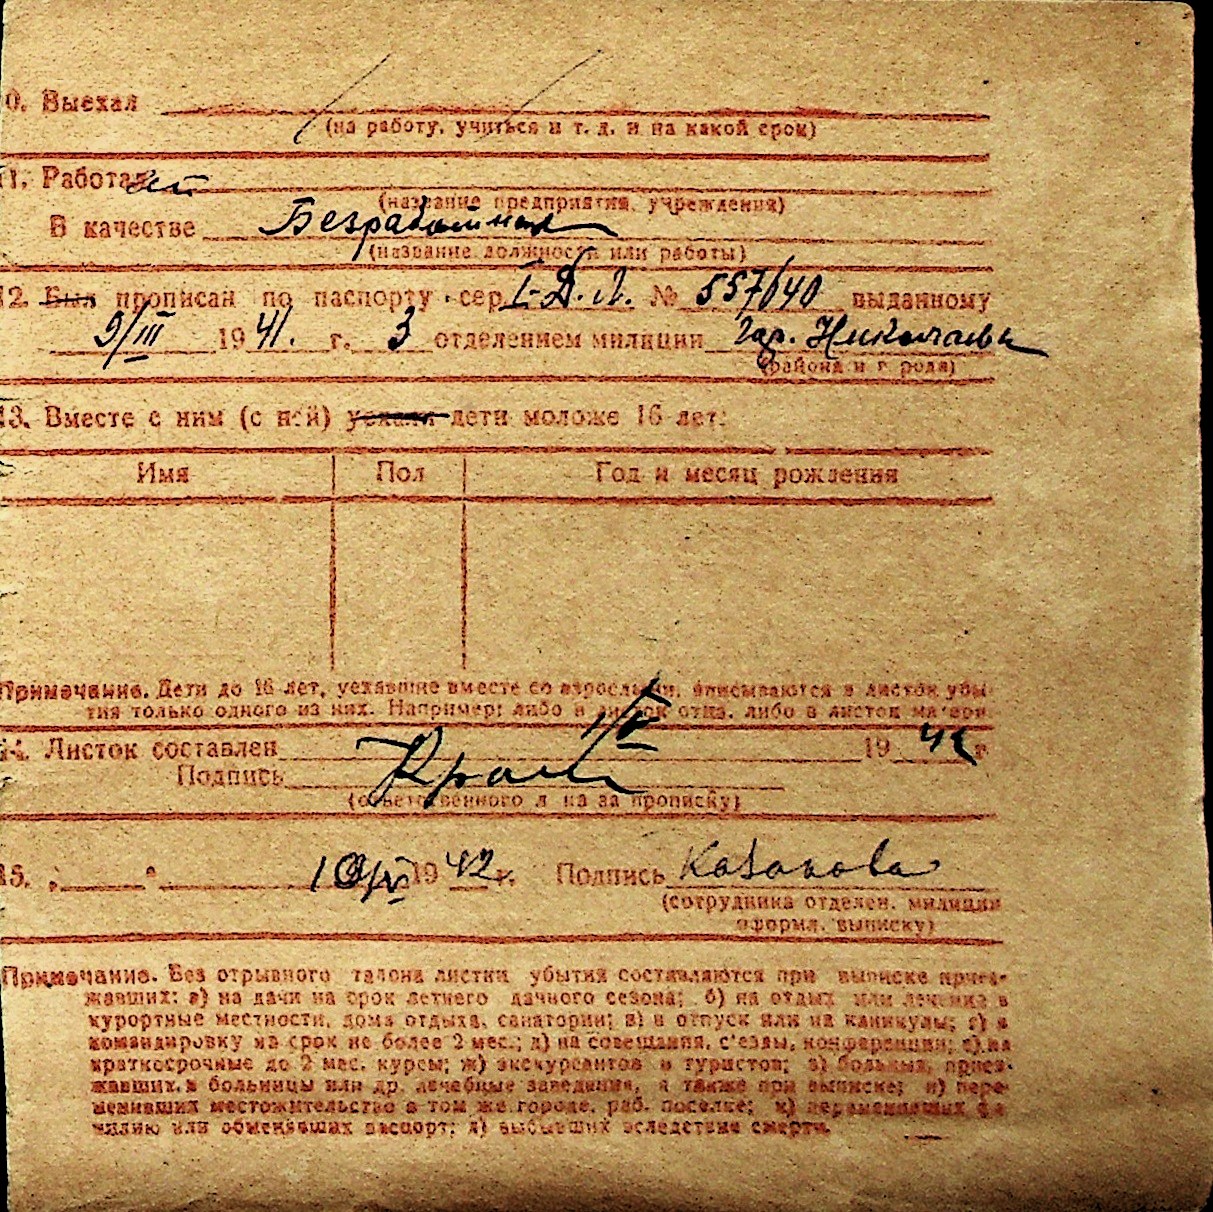 0. Выехал
(на работу, учиться и т. д. и на какой срок)
11. Работает
(название предприятия, учреждения)
В качестве Безработная
(название должности или работы)
12. Был прописан по паспорту сер. I-Д.Л. № 557640 выданному
9/III 1941. г. 3 отделением милиции гор. Николаева
(района и города)
13. Вместе с ним (с ней) уехали дети моложе 16 лет:
Имя Пол Год и месяц рождения
Примечание. Дети до 16 лет, уехавшие вместе со взрослыми, вписываются в листок убы-
тия только одного из них. Например: либо в листок отца, либо в листок матери.
14. Листок составлен 19 г.
Подпись
(ответственного л ка за прописку)
15. " " 10/IV 1942 г. Подпись Казакова
(сотрудника отделен. милиции
оформл. выписку)
Примечание. Без отрывного талона листки убытия составляются при выписке приез-
жавших: а) на дачи на срок летнего дачного сезона; б) на отдых или лечение в
курортные местности, дома отдыха, санатории; в) в отпуск или на каникулы; г) в
командировку на срок не более 2 мес.; д) на совещания, с'езды, конференции; е) на
краткосрочные до 2 мес. курсы; ж) экскурсантов и туристов; з) больных, приез-
жавших в больницы или др. лечебные заведения, а также при выписке; и) пере-
менивших местожительство в том же городе, раб. поселке; к) переменивших фа-
милию или обменявших паспорт; л) выбывших вследствие смерти.